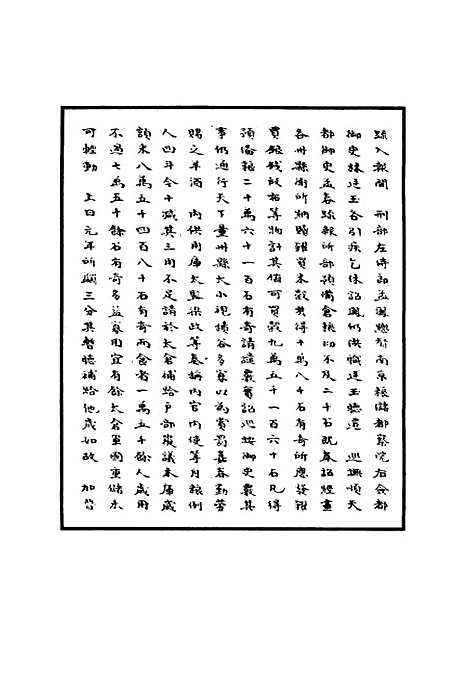 疏入報聞　刑部左侍郎孟鳳總督南京粮儲都察院右僉都
御史林廷玉各引疾乞休詔鳳仍供職廷玉聽選　巡撫順天
都御史孟春疏報所部預備倉粮初不及二十石既奉詔經畫
各州縣衛所納贖雜買米榖共得十萬八千石有奇所應發銀
買銀錢故布等物計其價可買榖九萬五千一百六十石凡得
預備粮二十萬六十一百石有奇請議覈實詔巡按御史覈其
事仍通行天下量州縣大小視積谷多寡以為賞罰嘉春勤勞
賜之羊酒　內供用庫太監梁政等奏稱內官內使等月粮例
人四斗今十減其三用不足請於太倉補給戶部復議本庫歲
額米八萬五十四百八十石有奇而食者一萬五十餘人歲用
不過七萬五十餘石有奇多益寡用宜有餘太倉軍國重儲未
可輕動　上曰元年所顧三分其暫聽補給他歲如故　加皆